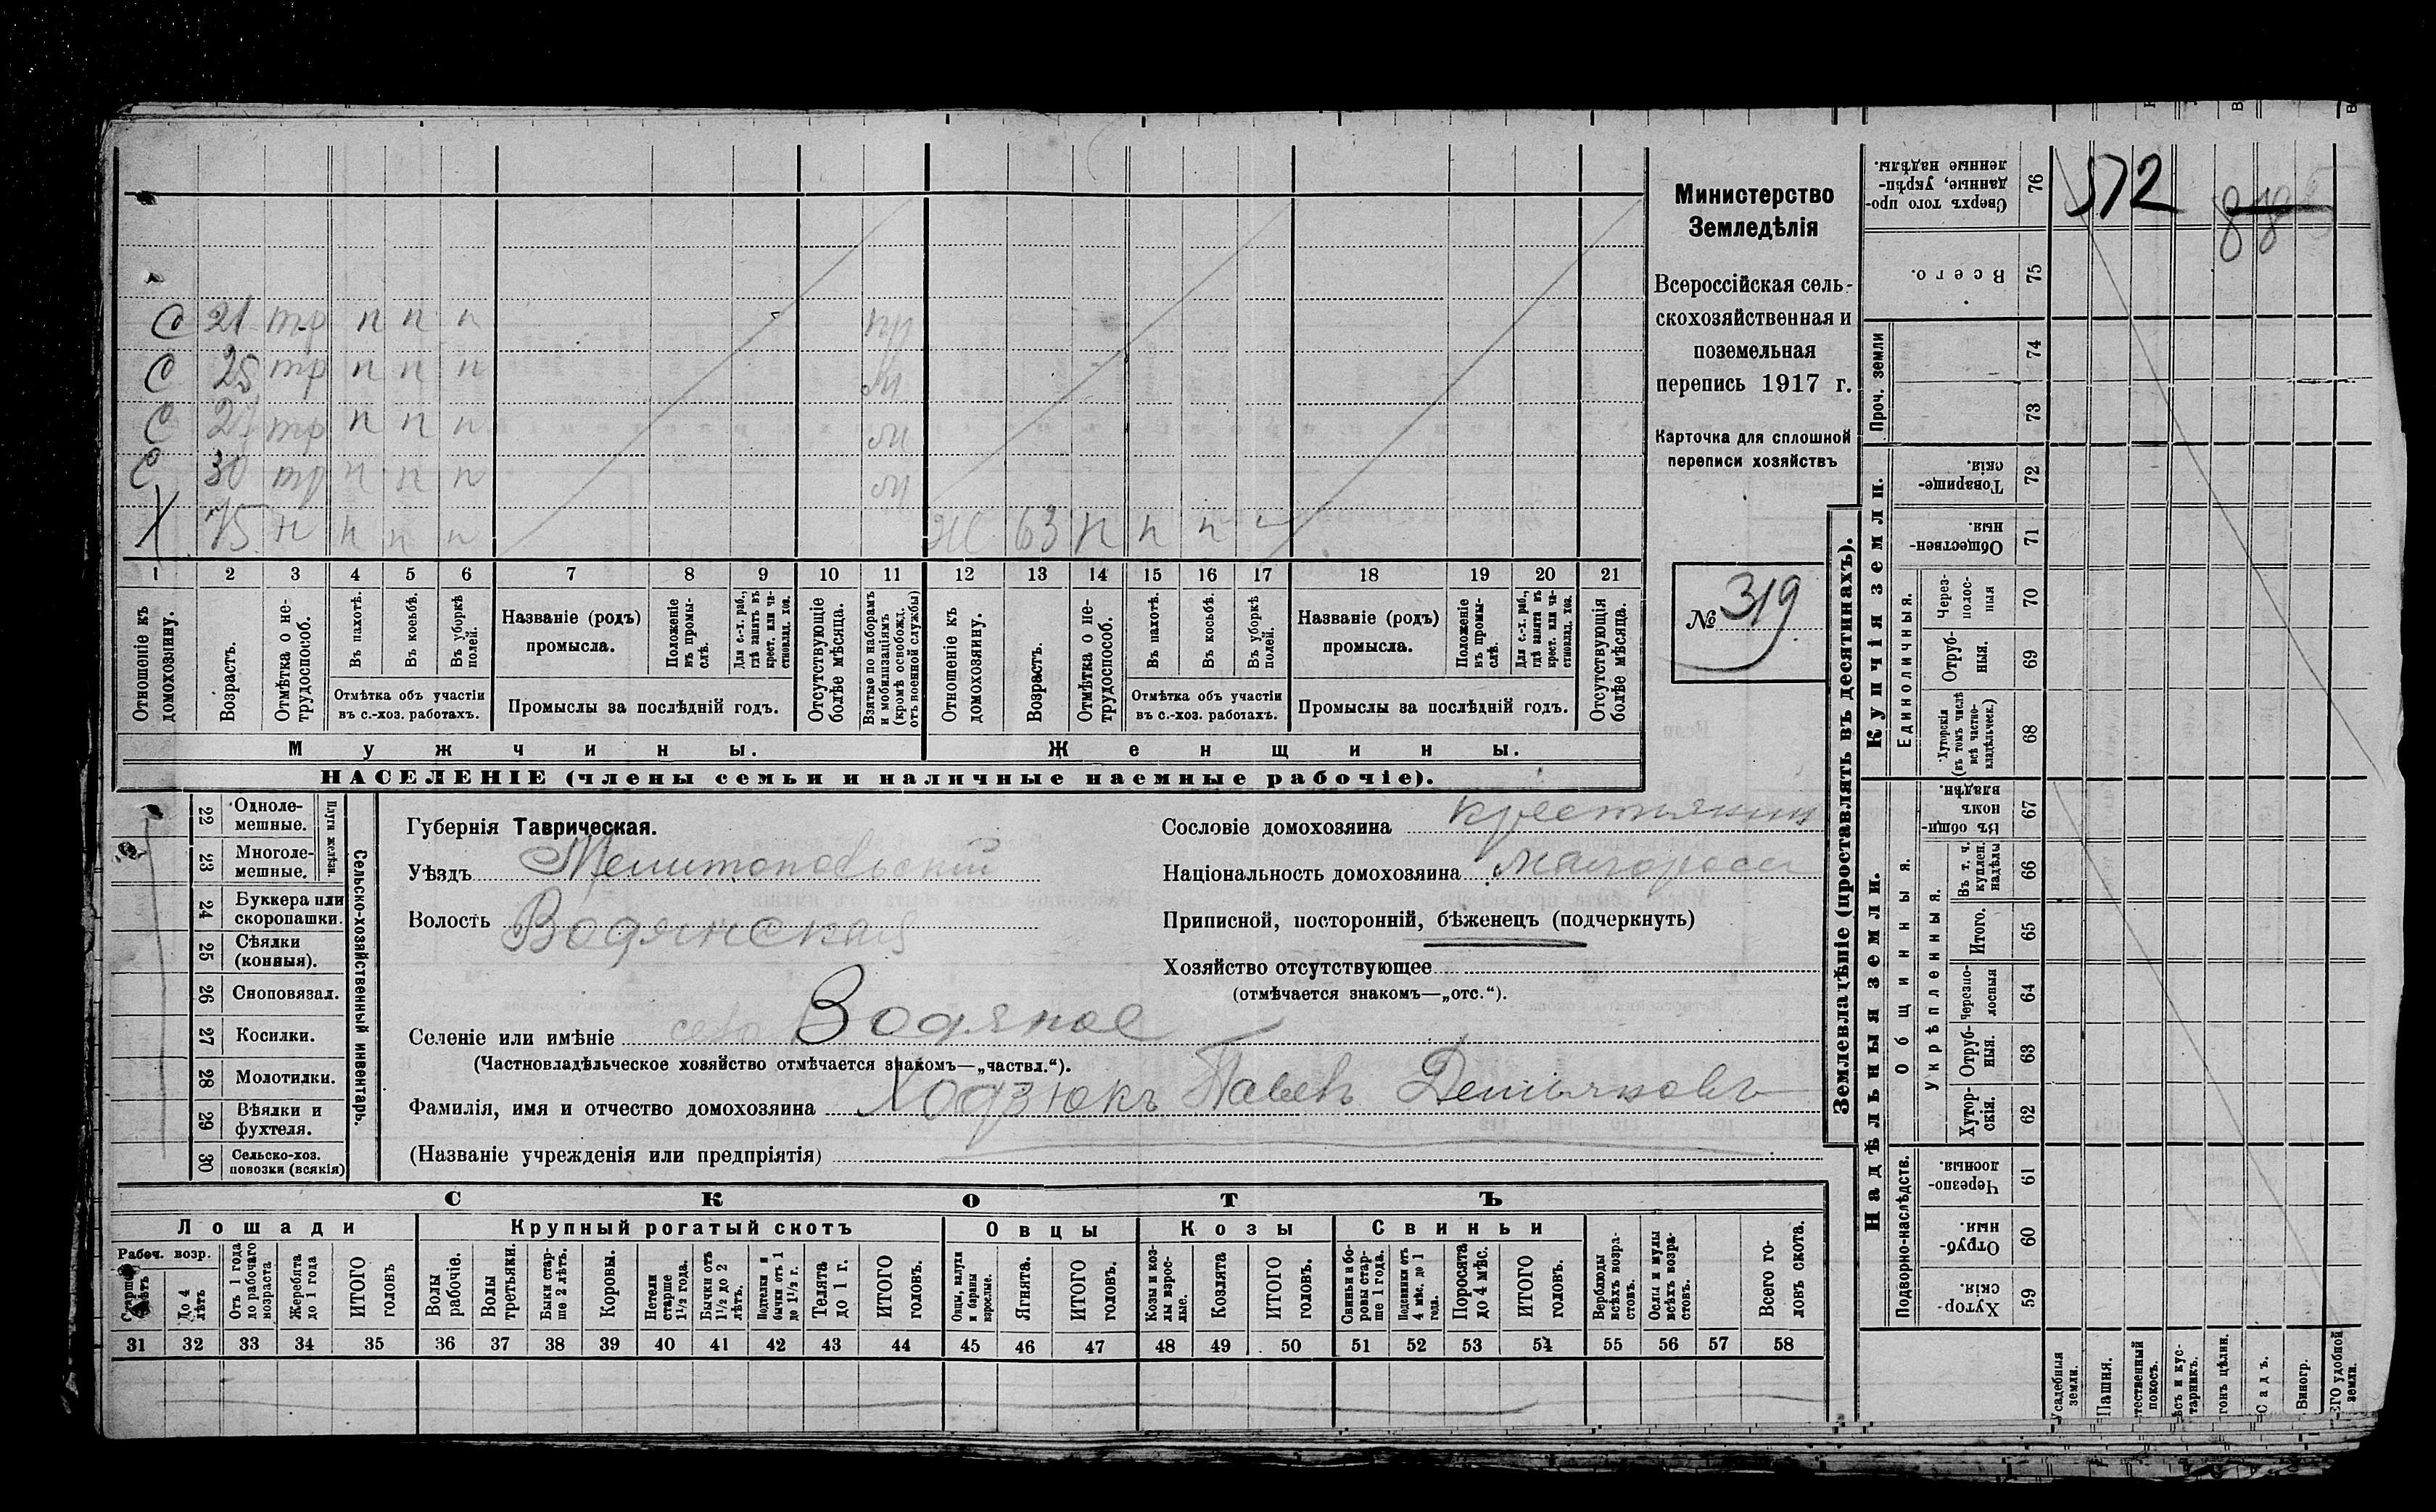 С 21 тр п п п
С 25 тр п п п м
С тр п п п м
С 30 тр п п п м
Х 75 н н н н Ж 63 н н н
1 2 3 4 5 6 7 8 9 10 11 12 13 14 15 16 17 18 19 20 21
Отношеніе къ домохозяину.
Возрастъ.
Отмѣтка о не-трудоспособ.
Въ пахотѣ.
Въ косьбѣ.
Въ уборкѣ полей.
Отмѣтка объ участіи
въ с.-хоз. работахъ.
Названіе (родъ)
промысла.
Положеніе въ промы-слѣ.
Для с.-х. раб., гдѣ занятъ въ крест. или ча-стновлад. хоз.
Промыслы за послѣдній годъ.
Отсутствующіе болѣе мѣсяца.
Взятые по наборамъ и мобилизаціямъ (кромѣ освобожд. отъ военной службы)
Отношеніе къ домохозяину.
Возрастъ.
Отмѣтка о не-трудоспособ.
Въ пахотѣ.
Въ косьбѣ.
Въ уборкѣ полей.
Отмѣтка объ участіи
въ с.-хоз. работахъ.
Названіе (родъ)
промысла.
Положеніе въ промы-слѣ.
Для с.-х. раб., гдѣ занята въ крест. или ча-стновлад. хоз.
Промыслы за послѣдній годъ.
Отсутствующія болѣе мѣсяца.
Мужчины. Женщины.
НАСЕЛЕНІЕ (члены семьи и наличные наемные рабочіе).
Министерство
Земледѣлія
Всероссійская сель-
скохозяйственная и
поземельная
перепись 1917 г.
Карточка для сплошной
переписи хозяйствъ
№ 319
22 Одноле-мешные.
23 Многоле-мешные.
Плуги желѣзн.
24 Буккера или скоропашки.
25 Сѣялки (конныя).
26 Сноповязал.
27 Косилки.
28 Молотилки.
29 Вѣялки и фухтеля.
30 Сельско-хоз. повозки (всякія)
Сельско-хозяйственный инвентарь.
Губернія Таврическая.
Уѣздъ Мелитопольскій
Волость Водянская
Сословіе домохозяина крестьянин
Національность домохозяина малоросс
Приписной, посторонній, бѣженецъ (подчеркнуть)
Хозяйство отсутствующее
(отмѣчается знакомъ—„отс.“).
Селеніе или имѣніе село Водяное
(Частновладѣльческое хозяйство отмѣчается знакомъ—„частвл.“).
Фамилія, имя и отчество домохозяина Ходзюкъ Павелъ Демьяновъ
(Названіе учрежденія или предпріятія)
СКОТЪ
Лошади Крупный рогатый скотъ Овцы Козы Свиньи
Рабоч. возр.
Старше лѣтъ
До 4 лѣтъ
Отъ 1 года до рабочаго возраста
Жеребята до 1 года
ИТОГО головъ
Волы рабочіе.
Волы третьяки.
Быки стар-ше 2 лѣтъ.
Коровы.
Нетели старше 1½ года.
Бычки отъ 1½ до 2 лѣтъ.
Подтелки и бычки отъ 1 до 1½ г.
Телята до 1 г.
ИТОГО головъ.
Овцы, валухи и бараны взрослые.
Ягнята.
ИТОГО головъ.
Козы и коз-лы взрос-лые.
Козлята
ИТОГО головъ.
Свиньи и бо-ровы стар-ше 1 года.
Подсвинки отъ 4 мѣс. до 1 года.
Поросята до 4 мѣс.
ИТОГО головъ.
Верблюды всѣхъ возра-стовъ.
Ослы и мулы всѣхъ возра-стовъ.
Всего го-ловъ скота.
31 32 33 34 35 36 37 38 39 40 41 42 43 44 45 46 47 48 49 50 51 52 53 54 55 56 57 58
Землевладѣніе (проставлять въ десятинахъ).
Купчія земли.
Надѣльныя земли.
Сверхъ того про-данные, укрѣп-ленные надѣлы. 76
572
Всего. 75
Проч. земли 74 73
Товарище-скія. 72
Обществен-ныя. 71
Единоличныя.
Через-полос-ныя 70
Отруб-ныя. 69
Хуторскія (въ томъ числѣ всѣ частно-владѣльческ.) 68
Общинныя.
Въ общин-номъ владѣн. 67
Укрѣпленныя.
Въ т. ч. куплен. надѣлы 66
Итого. 65
Черезпо-лосныя 64
Отруб-ныя. 63
Хутор-скія. 62
Подворно-наслѣдств.
Черезпо-лосныя. 61
Отруб-ныя. 60
Хутор-скія. 59
Усадебныя земли.
Пашня.
тественный покосъ.
ѣсъ и кус-тарникъ.
гонъ цѣлин.
Садъ.
Виногр.
ЕГО удобной земли.